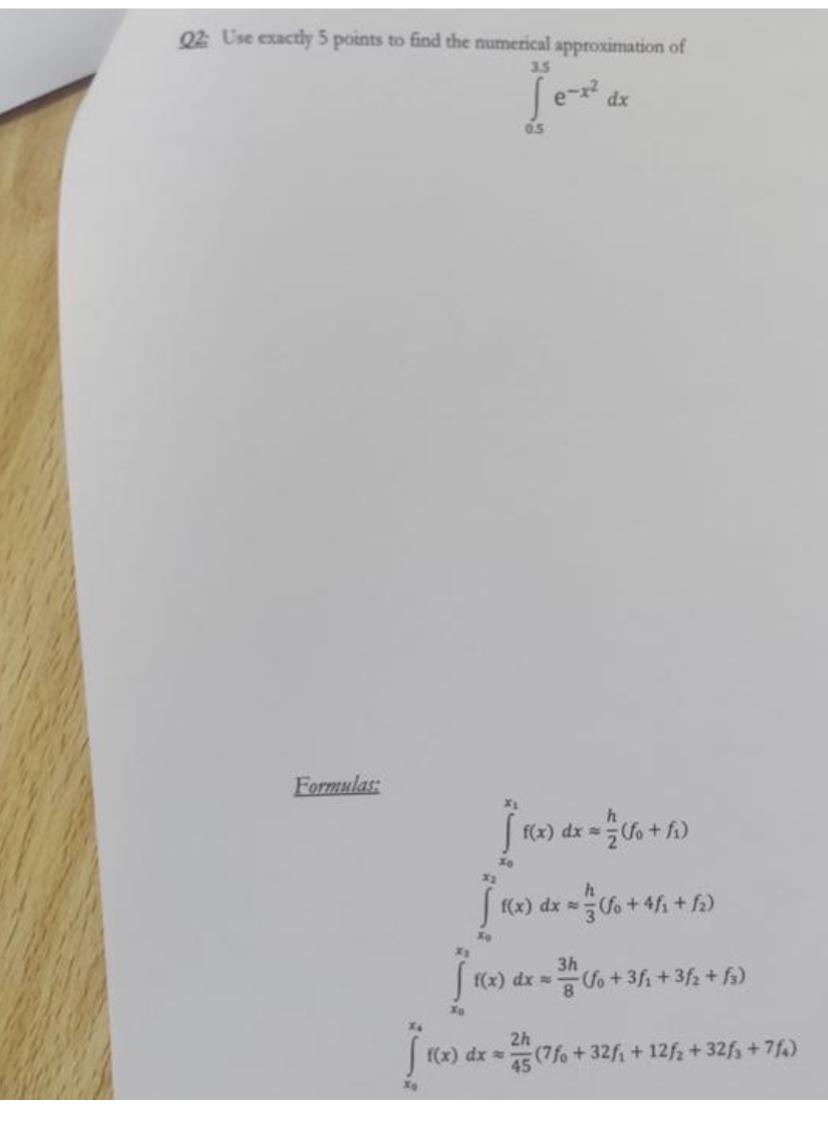 Q2: Use exactly 5 points to find the numerical approximation of
∫_{0.5}^{3.5} e^{-x²} dx
Formulas:
∫_{x₀}^{x₁} f(x) dx ≈ h/2 (f₀ + f₁)
∫_{x₀}^{x₂} f(x) dx ≈ h/3 (f₀ + 4f₁ + f₂)
∫_{x₀}^{x₃} f(x) dx ≈ 3h/8 (f₀ + 3f₁ + 3f₂ + f₃)
∫_{x₀}^{x₄} f(x) dx ≈ 2h/45 (7f₀ + 32f₁ + 12f₂ + 32f₃ + 7f₄)